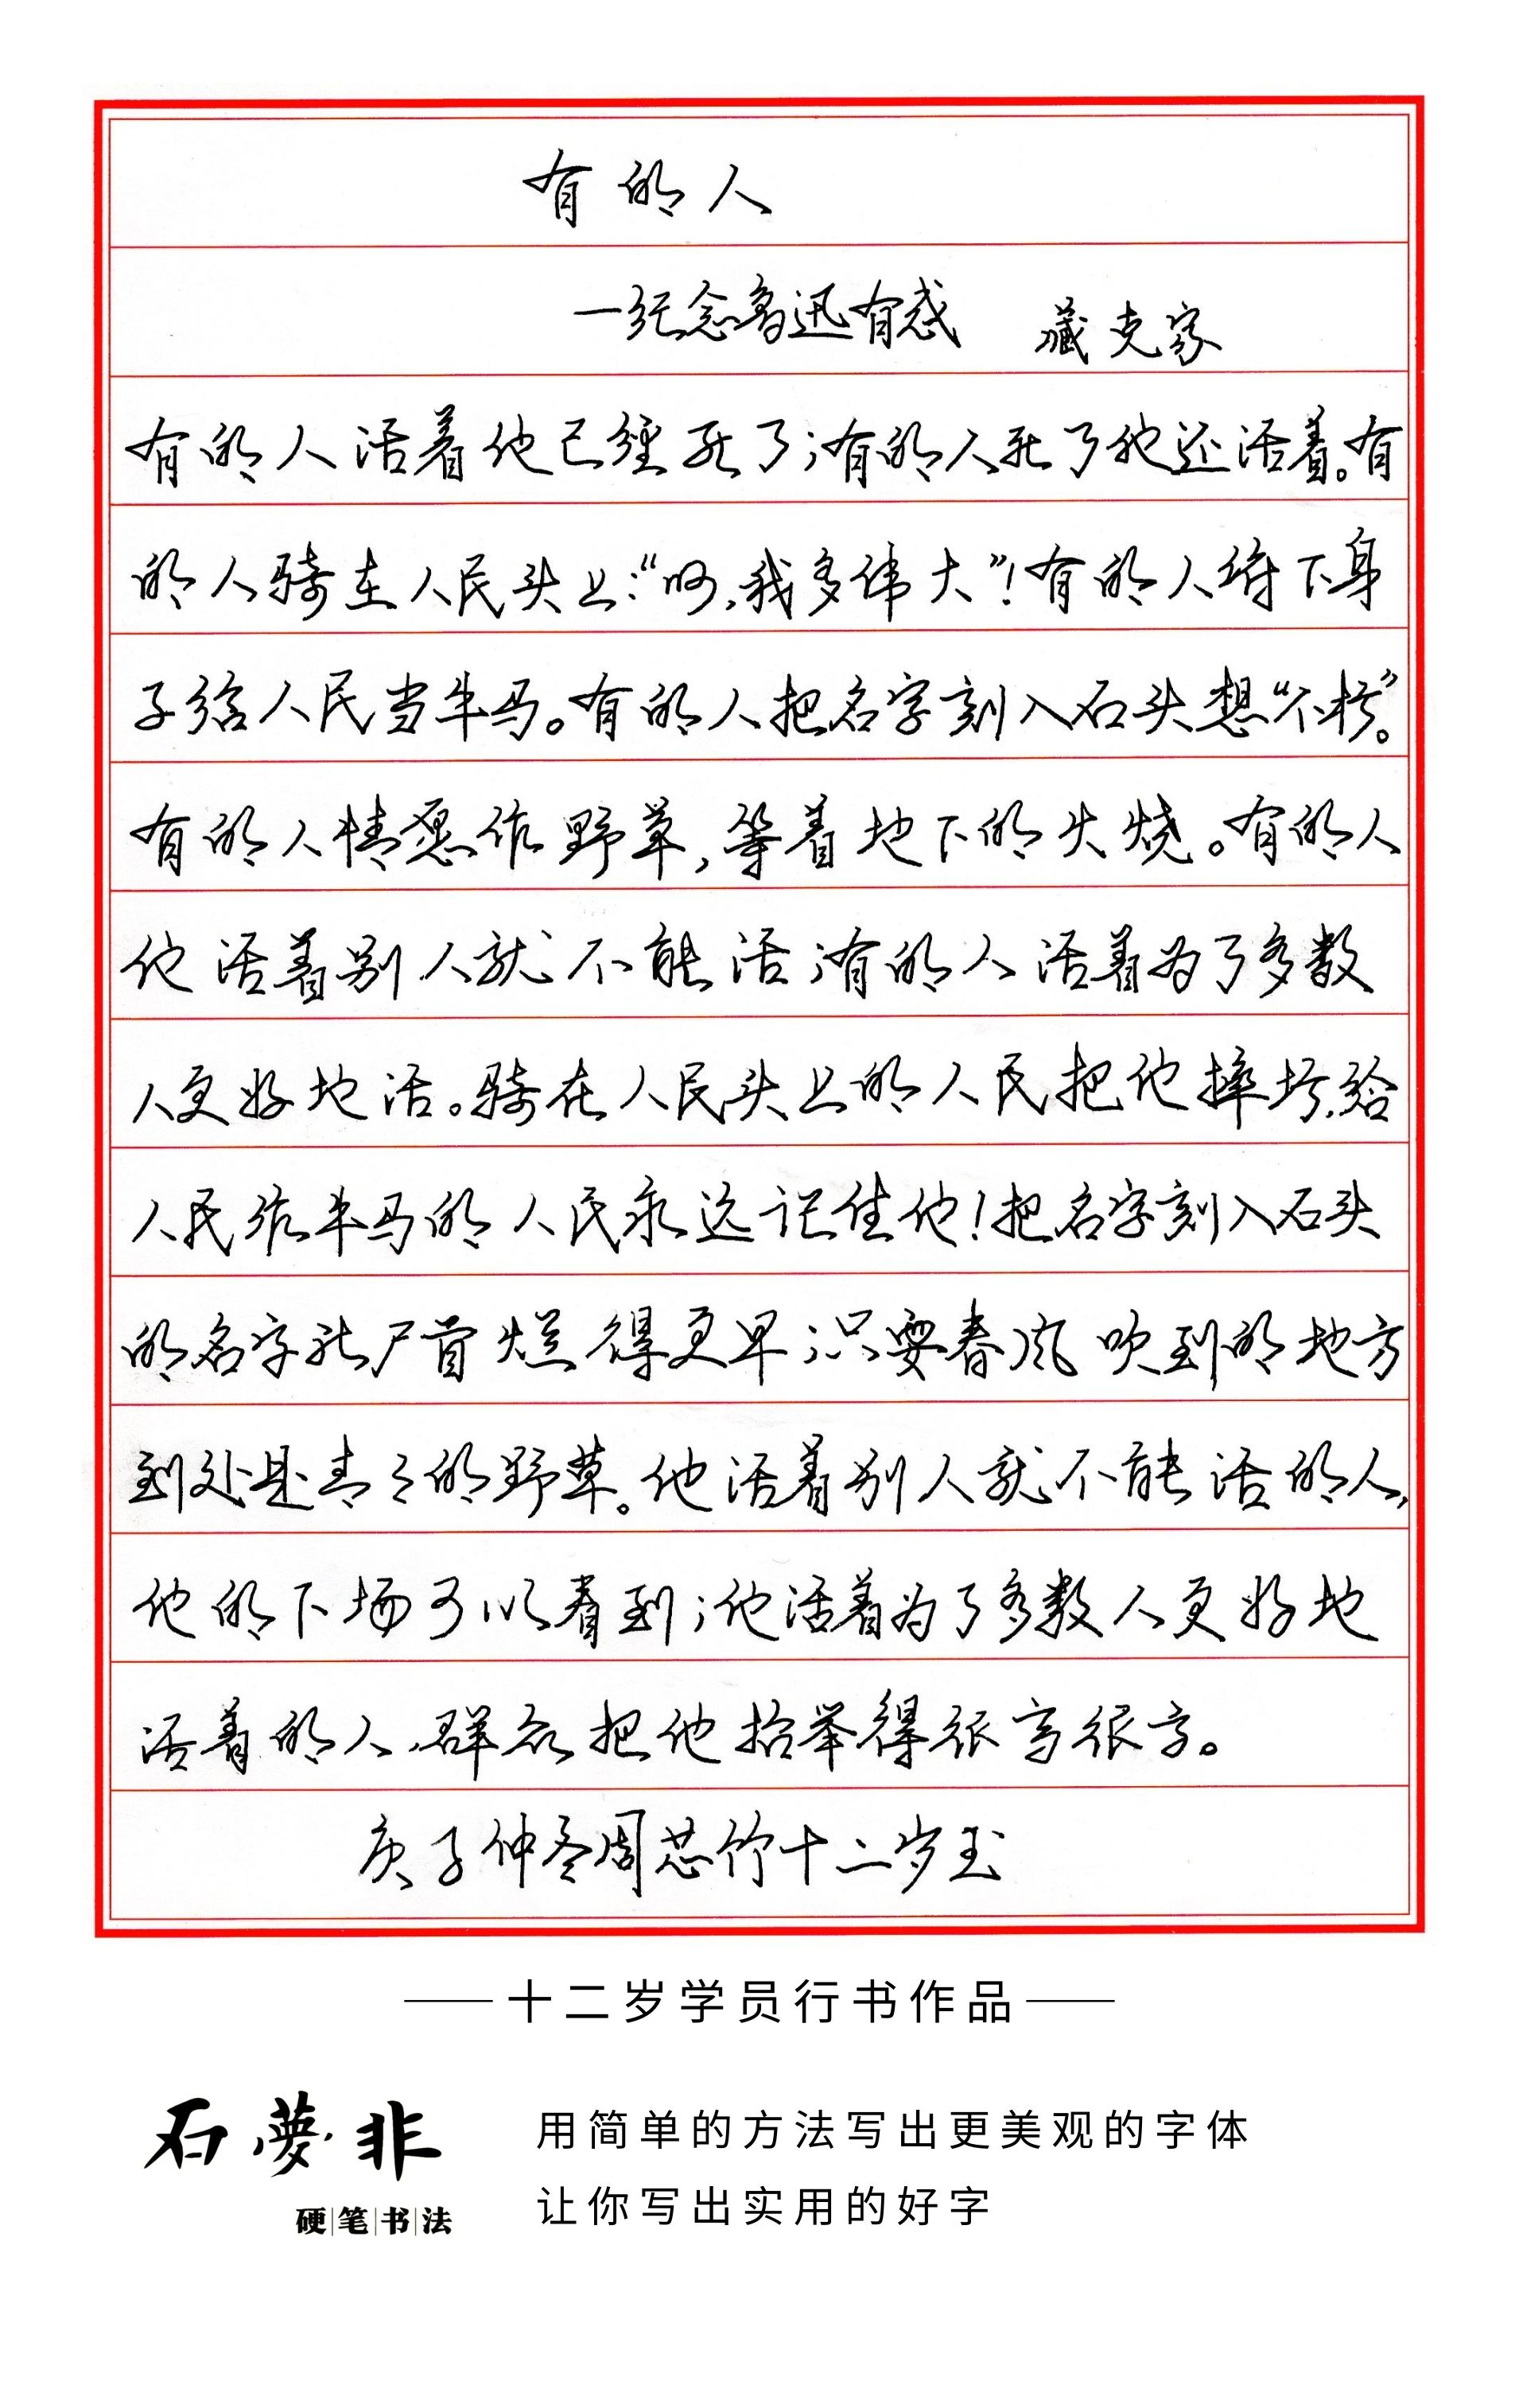 有的人
一纪念鲁迅有感 臧克家
有的人活着他已经死了;有的人死了他还活着。有
的人骑在人民头上:“呵,我多伟大”!有的人俯下身
子给人民当牛马。有的人把名字刻入石头想“不朽”。
有的人情愿作野草,等着地下的火烧。有的人
他活着别人就不能活;有的人活着为了多数
人更好地活。骑在人民头上的人民把他摔垮,给
人民作牛马的人民永远记住他!把名字刻入石头
的名字比尸首烂得更早;只要春风吹到的地方
到处是青々的野草。他活着别人就不能活的人,
他的下场可以看到;他活着为了多数人更好地
活着的人,群众把他抬举得很高很高。
庚子仲冬周芯竹十二岁书
十二岁学员行书作品
石夢非
硬笔书法
用简单的方法写出更美观的字体
让你写出实用的好字